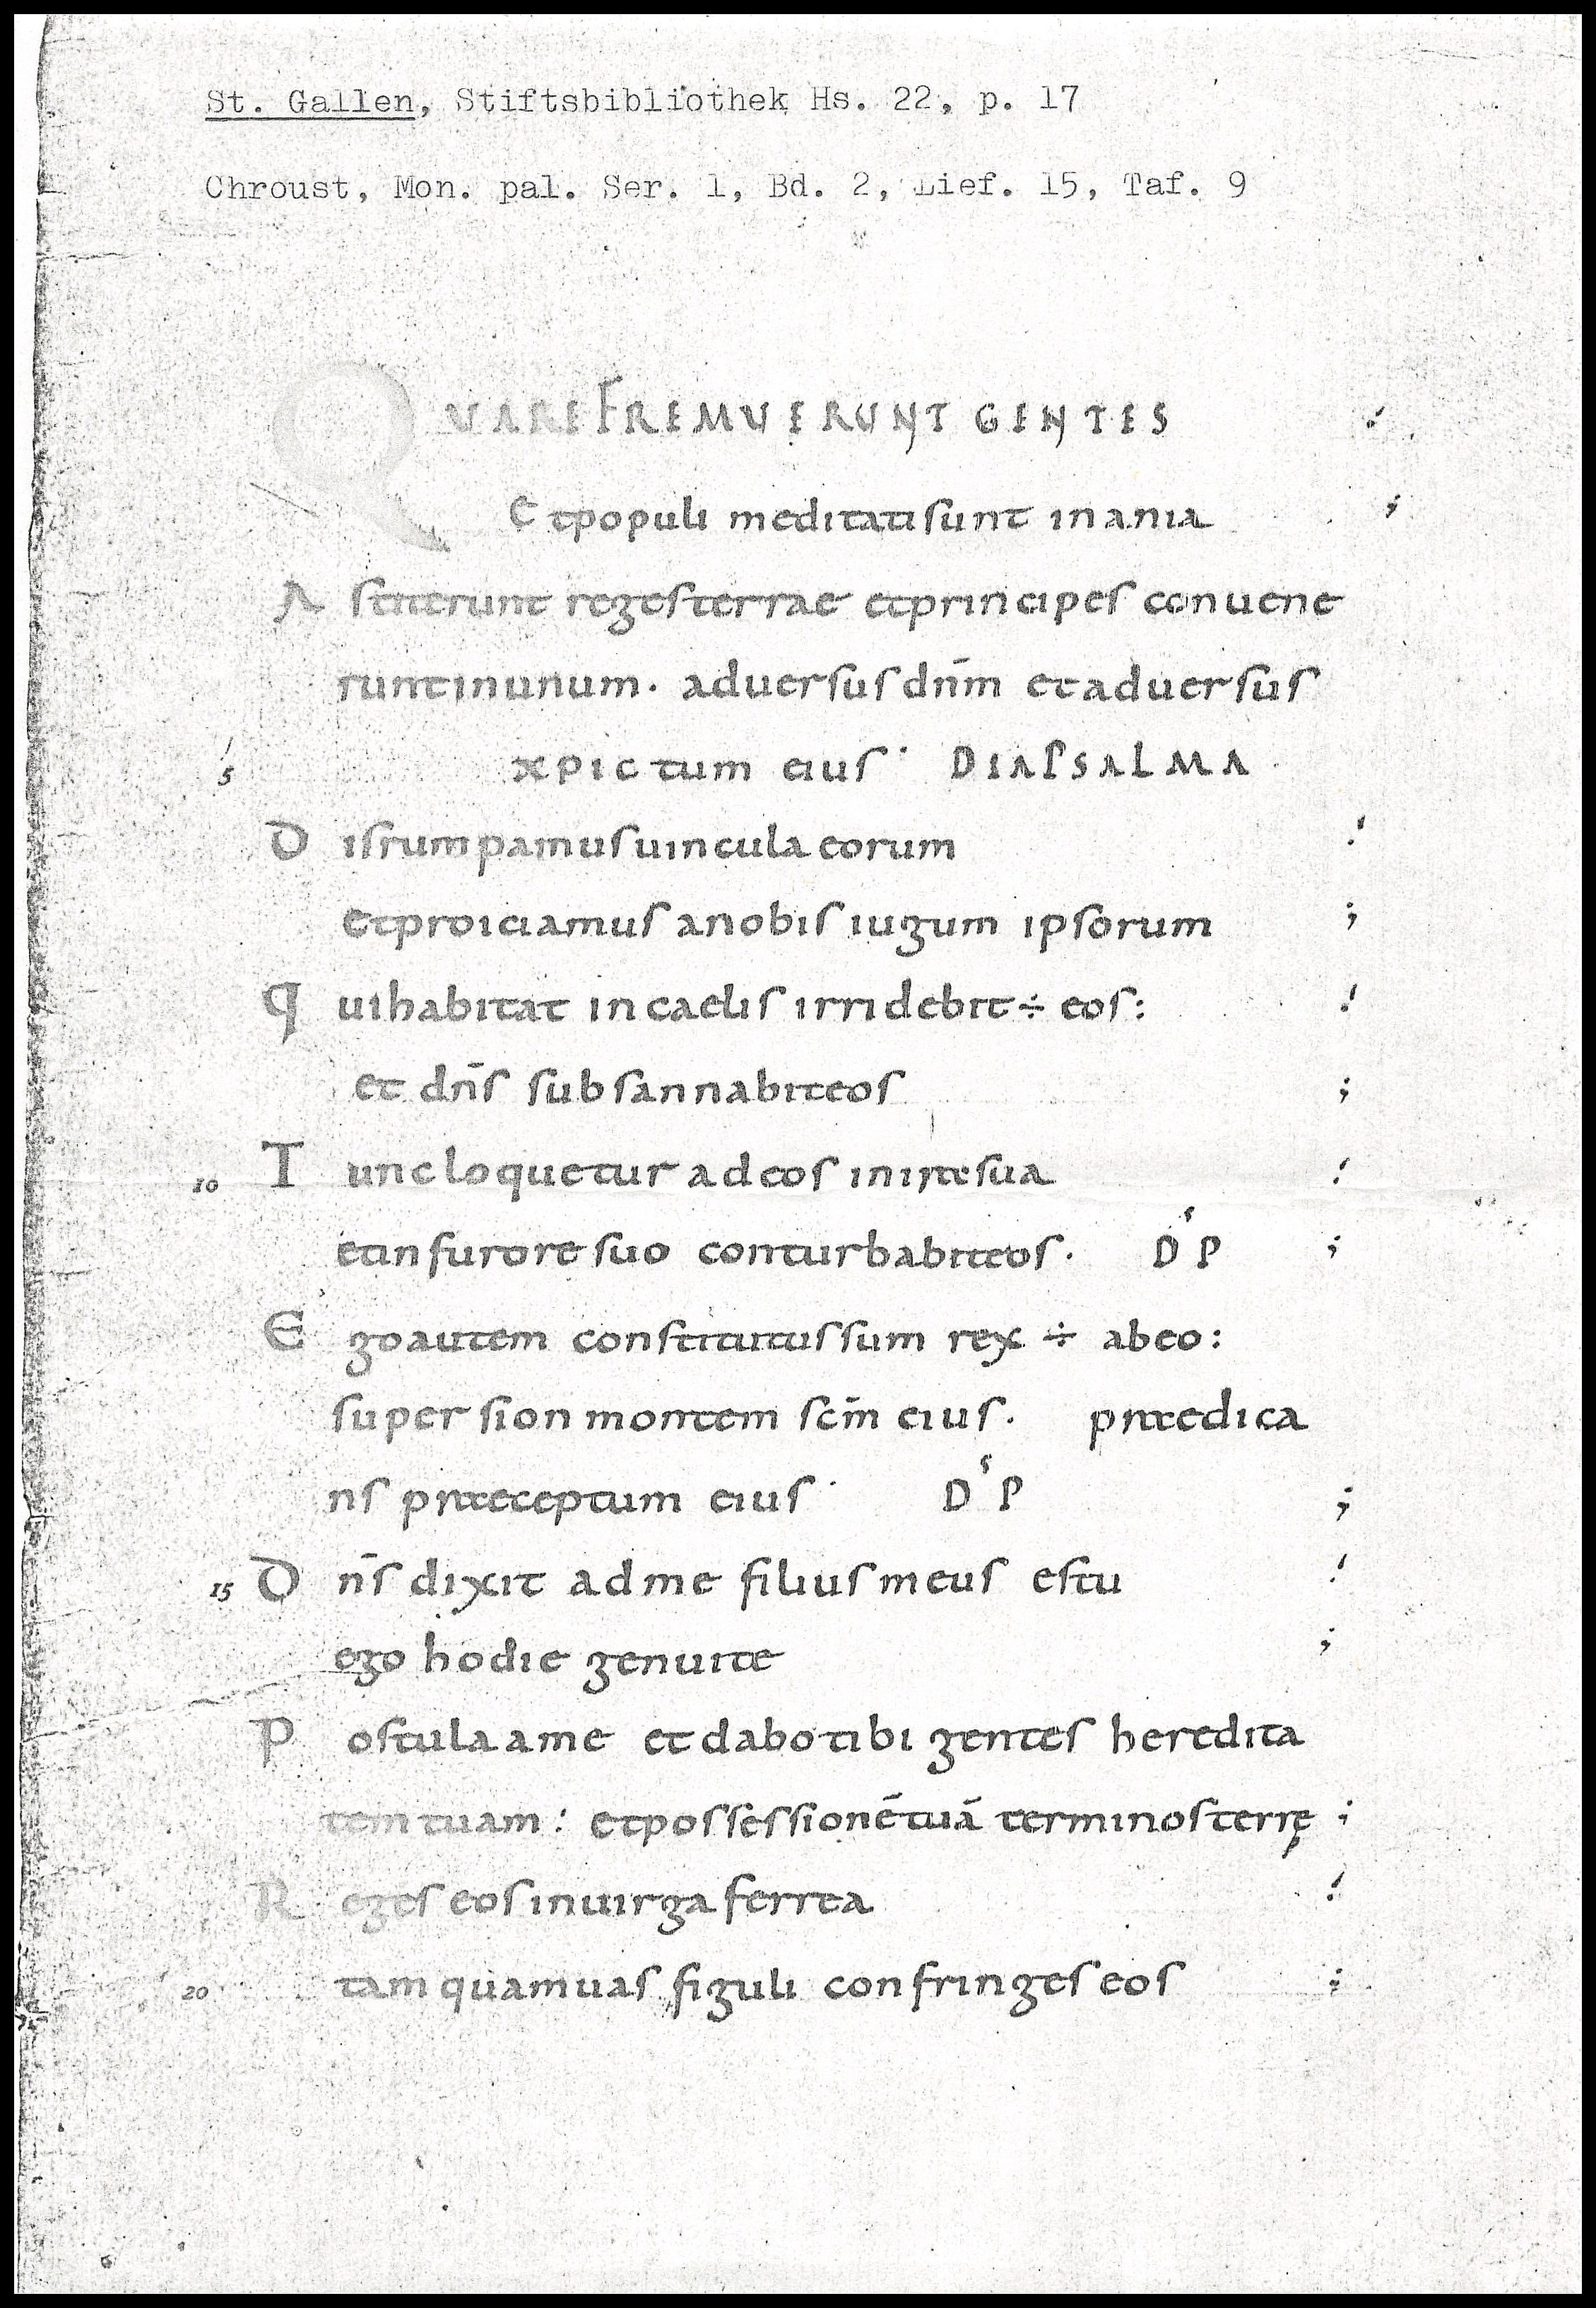 St. Gallen, Stiftsbibliothek Hs. 22, p. 17
Chroust, Mon. pal. Ser. 1, Bd. 2, Lief. 15, Taf. 9
QVARE FREMVERUNT GENTES
Et populi meditati sunt inania ;
Astiterunt reges terrae et principes conuene
runt in unum · aduersus dn̄m et aduersus
5 xpictum eius · DIAPSALMA
Disrumpamus uincula eorum
et proiciamus a nobis iugum ipsorum ;
Qui habitat in caelis irridebit ÷ eos :
et dn̄s subsannabit eos ;
10 Tunc loquetur ad eos in ire sua
et in furore suo conturbabit eos · DṡP ;
Ego autem constitutus sum rex ÷ ab eo :
super sion montem scm̄ eius · praedica
ns praeceptum eius · DṡP ;
15 Dn̄s dixit ad me filius meus es tu
ego hodie genui te ;
Postula a me et dabo tibi gentes heredita
tem tuam : et possessionē tuā terminos terrę ;
Reges eos in uirga ferrea
20 tamquam uas figuli confringes eos ;